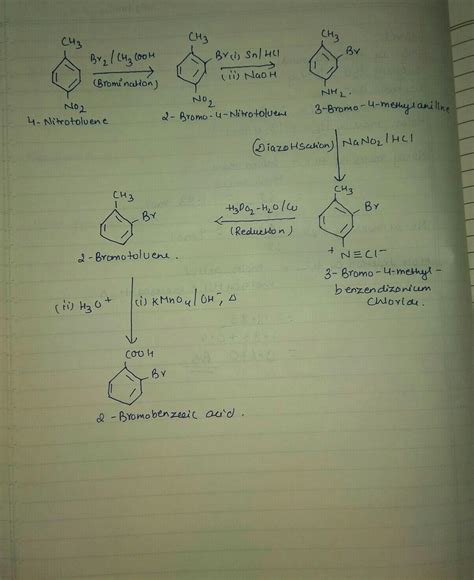 CH3
NO2
4-Nitrotoluene
Br2/CH3COOH
(Bromination)
CH3
Br
NO2
2-Bromo-4-Nitrotoluene
(i) Sn/HCl
(ii) NaOH
CH3
Br
NH2.
3-Bromo-4-methylaniline
(Diazotisation)
NaNO2/HCl
CH3
Br
+
N≡Cl-
3-Bromo-4-methyl-
benzendizonium
Chloride.
H3PO2-H2O/Cu
(Reduction)
CH3
Br
2-Bromotoluene.
(ii) H3O+
(i) KMnO4/OH-, Δ
COOH
Br
2-Bromobenzoic acid.